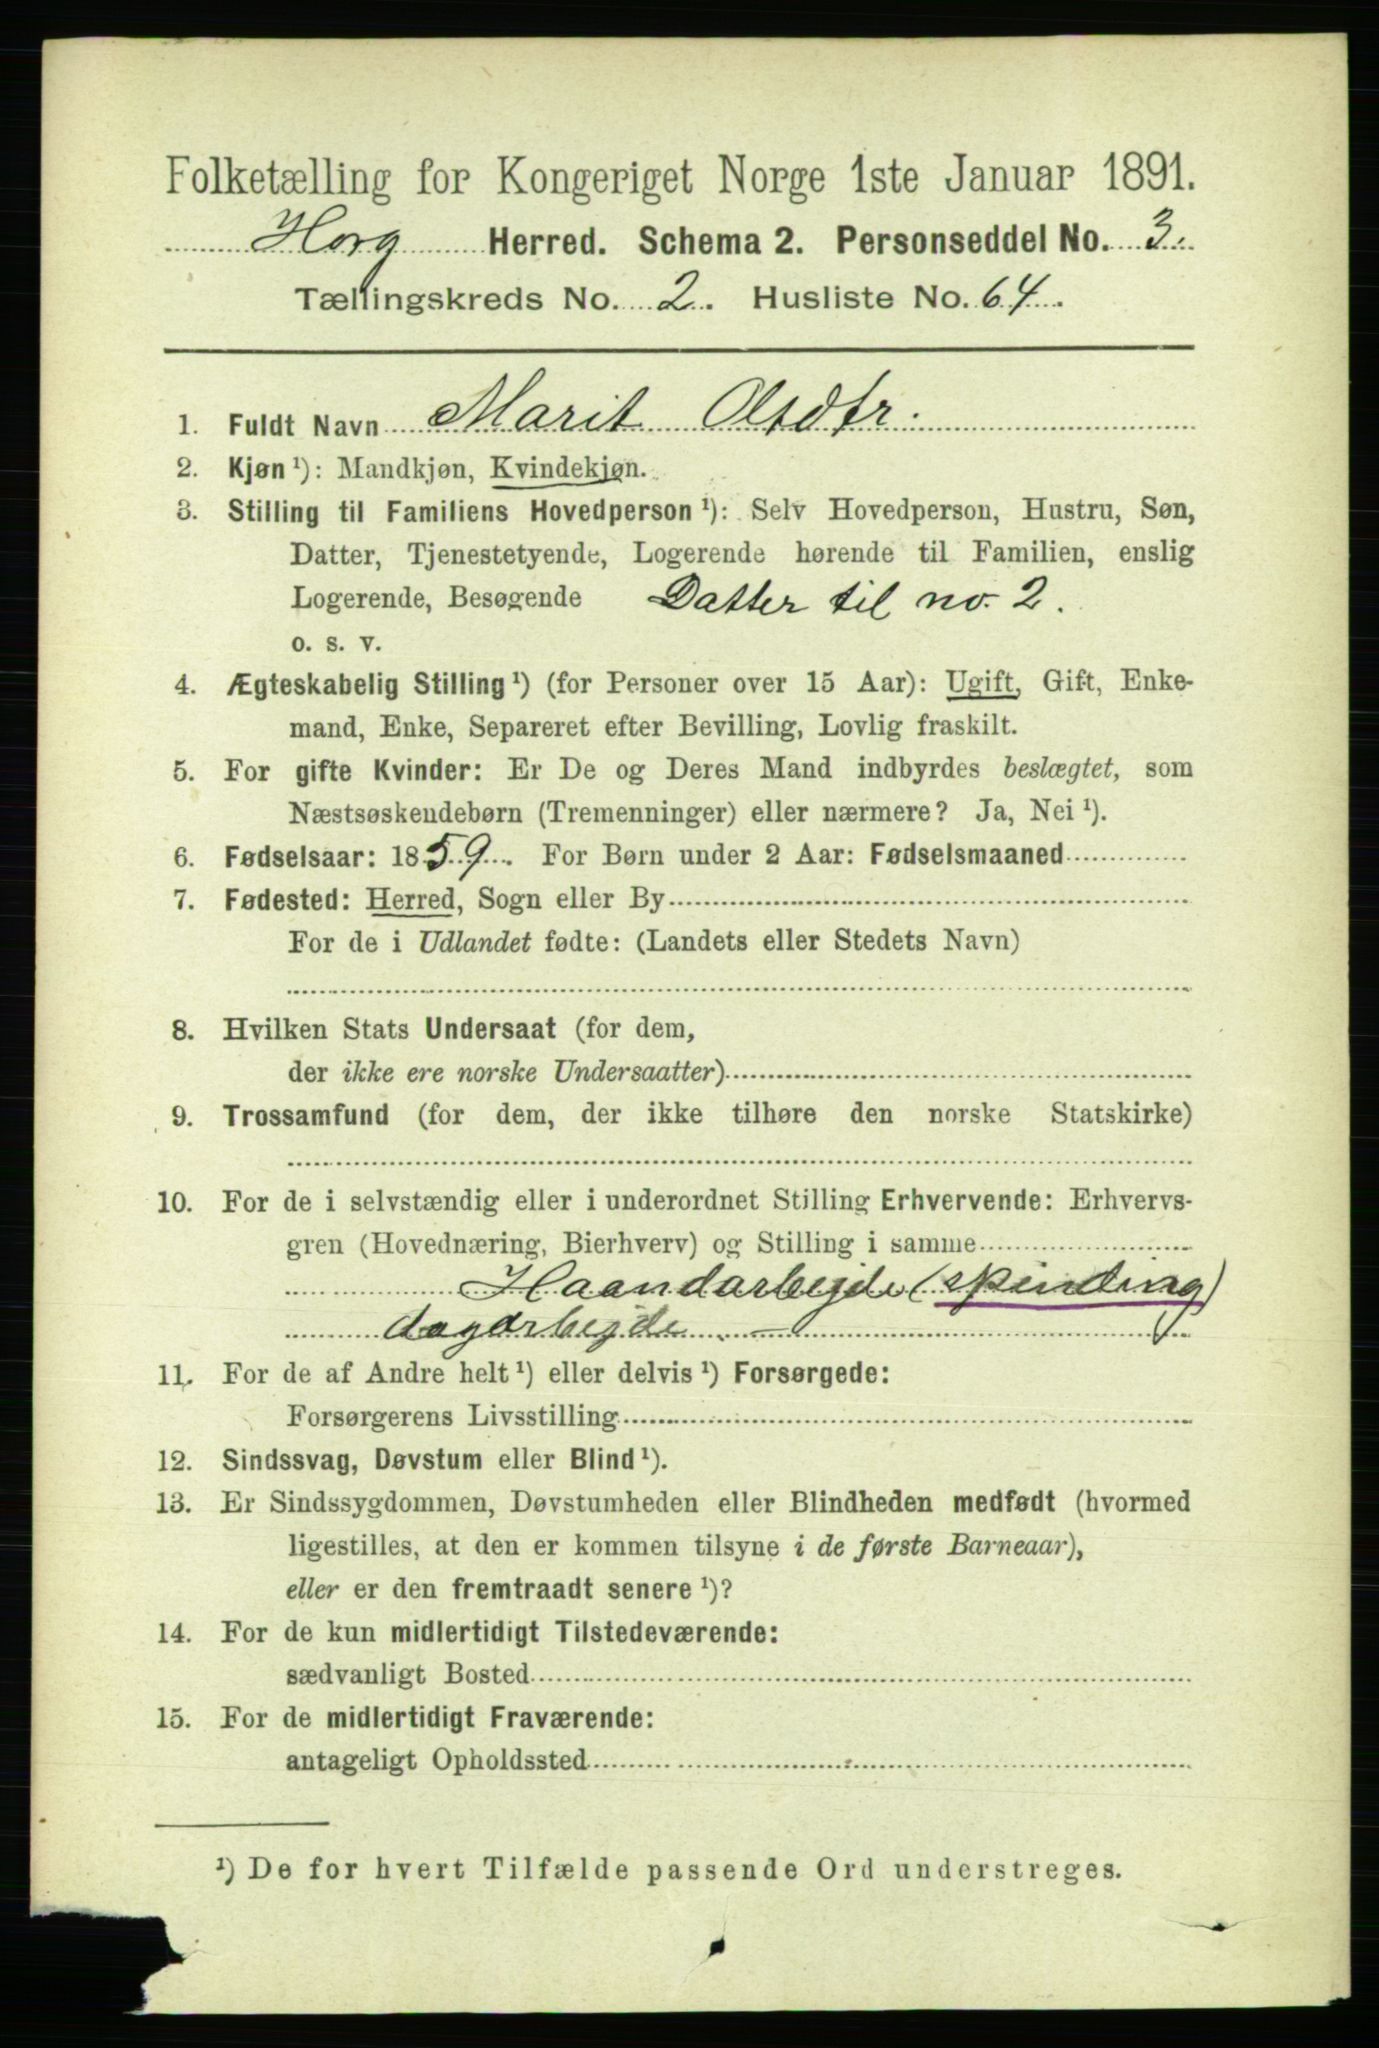 Folketælling for Kongeriget Norge 1ste Januar 1891.
Horg Herred. Schema 2. Personseddel No. 3.
Tællingskreds No. 2. Husliste No. 64.
1. Fuldt Navn Marit Olsdtr.
2. Kjøn ¹): Mandkjøn, Kvindekjøn.
3. Stilling til Familiens Hovedperson ¹): Selv Hovedperson, Hustru, Søn,
Datter, Tjenestetyende, Logerende hørende til Familien, enslig
Logerende, Besøgende Datter til no. 2.
o. s. v.
4. Ægteskabelig Stilling ¹) (for Personer over 15 Aar): Ugift, Gift, Enke-
mand, Enke, Separeret efter Bevilling, Lovlig fraskilt.
5. For gifte Kvinder: Er De og Deres Mand indbyrdes beslægtet, som
Næstsøskendebørn (Tremenninger) eller nærmere? Ja, Nei ¹).
6. Fødselsaar: 1859. For Børn under 2 Aar: Fødselsmaaned
7. Fødested: Herred, Sogn eller By
For de i Udlandet fødte: (Landets eller Stedets Navn)
8. Hvilken Stats Undersaat (for dem,
der ikke ere norske Undersaatter)
9. Trossamfund (for dem, der ikke tilhøre den norske Statskirke)
10. For de i selvstændig eller i underordnet Stilling Erhvervende: Erhvervs-
gren (Hovednæring, Bierhverv) og Stilling i samme
Haandarbejde (spinding)
dagarbejde
11. For de af Andre helt ¹) eller delvis ¹) Forsørgede:
Forsørgerens Livsstilling
12. Sindssvag, Døvstum eller Blind ¹).
13. Er Sindssygdommen, Døvstumheden eller Blindheden medfødt (hvormed
ligestilles, at den er kommen tilsyne i de første Barneaar),
eller er den fremtraadt senere ¹)?
14. For de kun midlertidigt Tilstedeværende:
sædvanligt Bosted
15. For de midlertidigt Fraværende:
antageligt Opholdssted
¹) De for hvert Tilfælde passende Ord understreges.